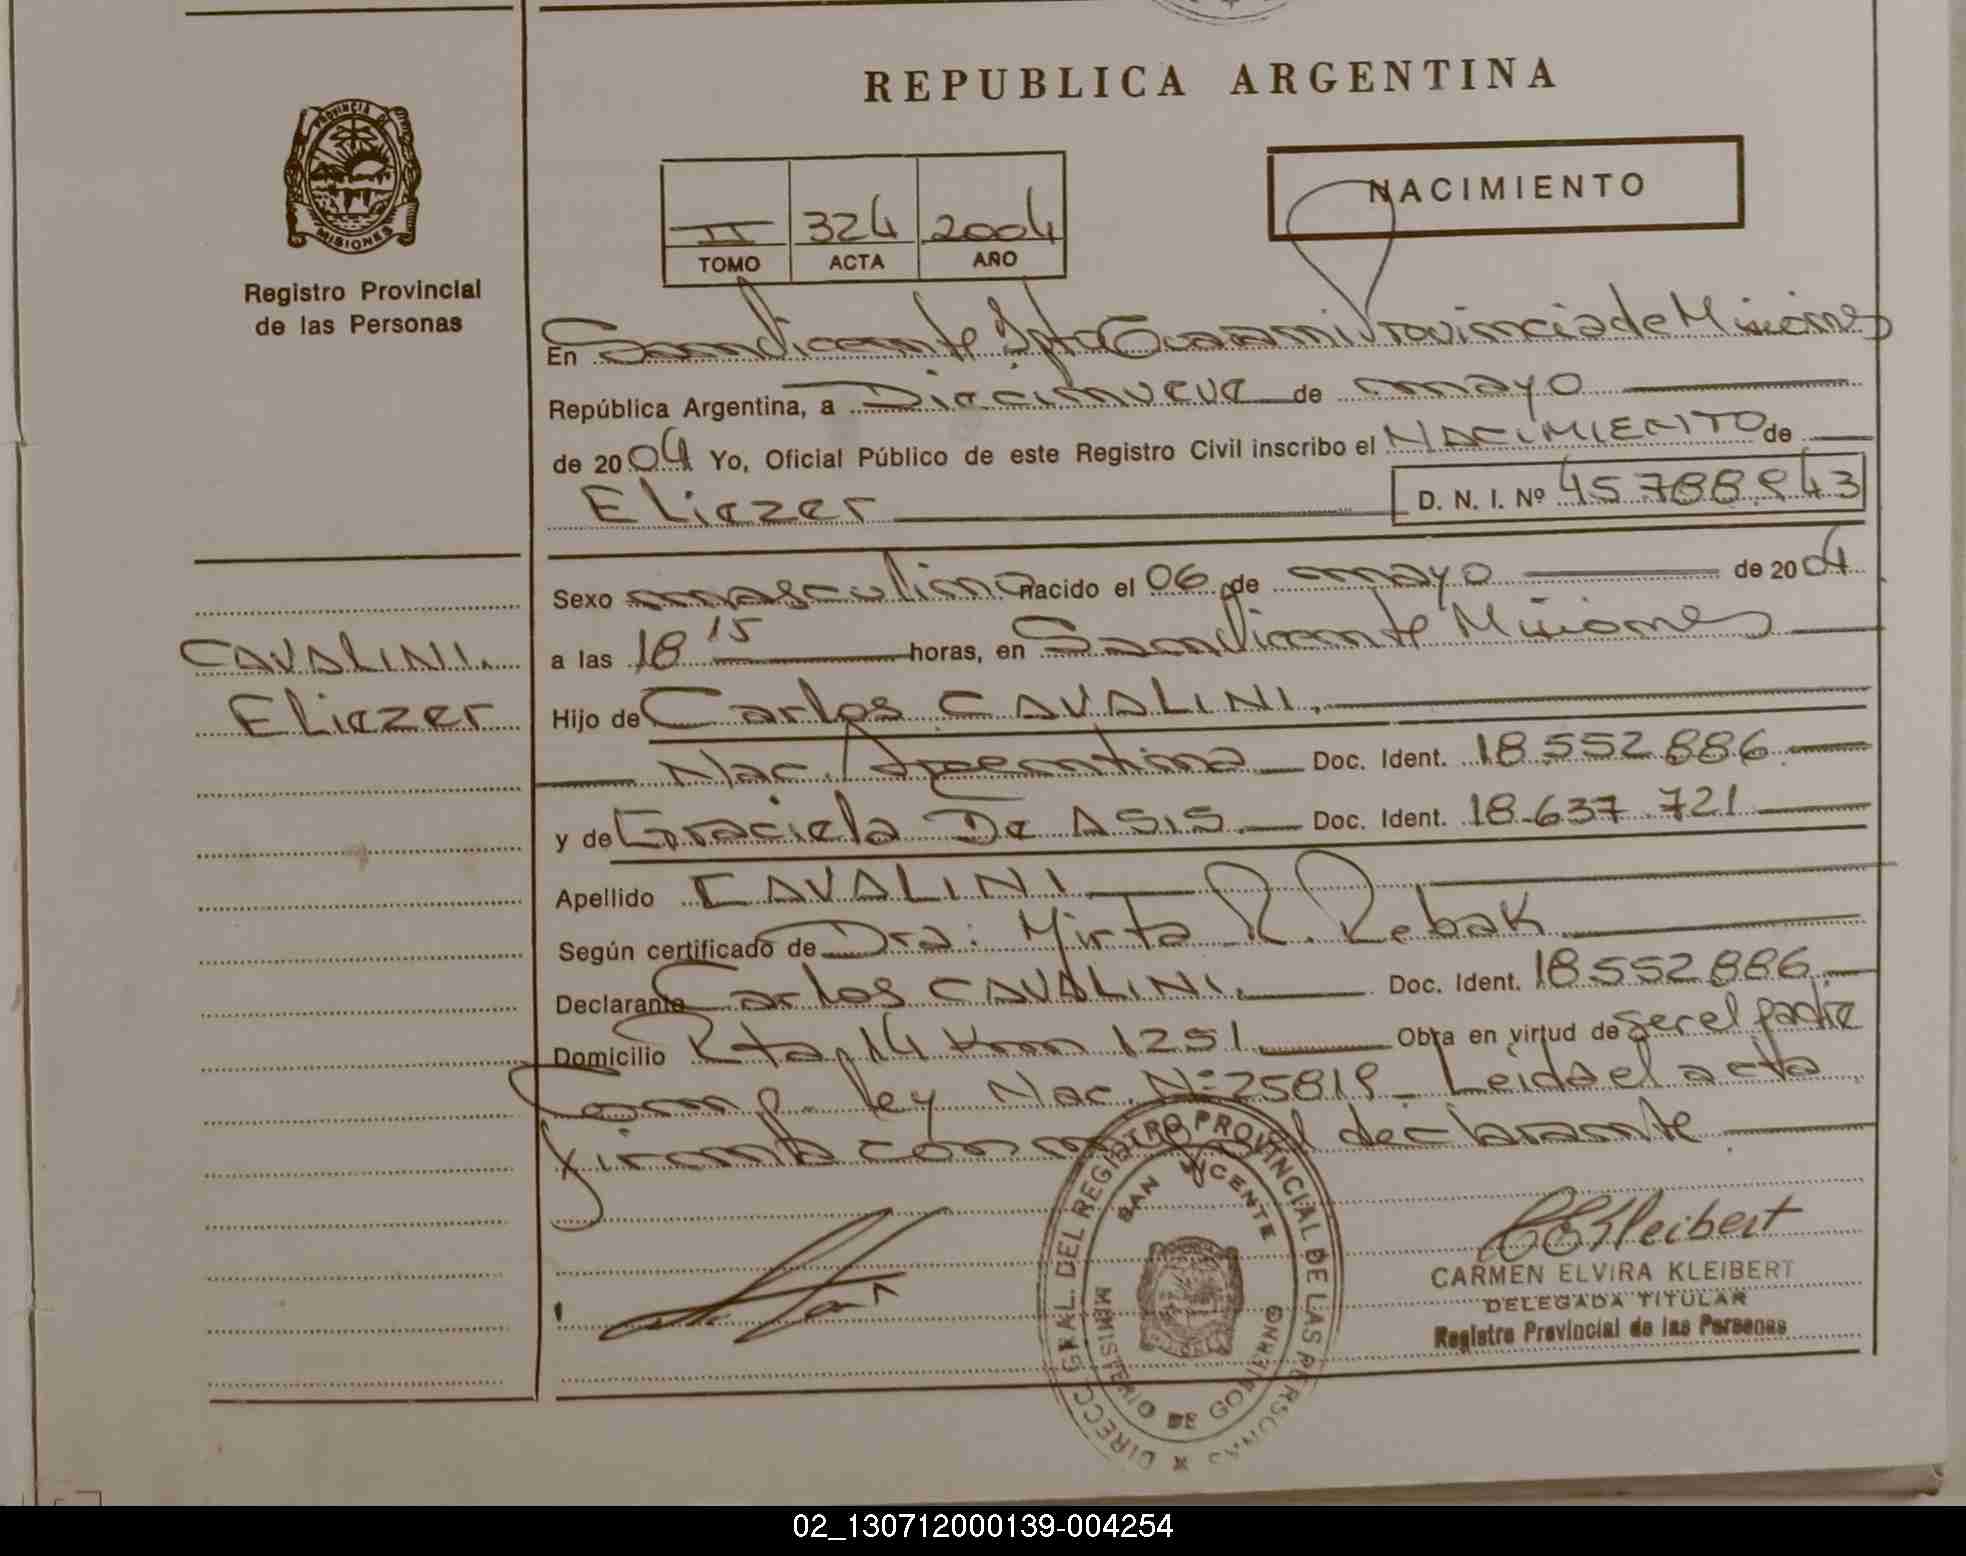 REPUBLICA ARGENTINA
PROVINCIA DE
MISIONES
Registro Provincial
de las Personas
NACIMIENTO
II 324 2004
TOMO ACTA AÑO
En San Vicente Dpto Guaraní Provincia de Misiones
República Argentina, a Diecinueve de mayo
de 2004 Yo, Oficial Público de este Registro Civil inscribo el NACIMIENTO de
Eliezer D. N. I. Nº
Sexo masculino nacido el 06 de mayo de 2004
CAVALINI.
Eliezer
a las 18 15 horas, en San Vicente Misiones
Hijo de Carlos CAVALINI.
Nac. Argentina Doc. Ident. 18.552.886
y de Graciela De ASIS. Doc. Ident. 18.637.721
Apellido CAVALINI
Según certificado de Dra: Mirta R. Rebak
Declarante Carlos CAVALINI. Doc. Ident. 18.552.886
Domicilio Rta. 14 Km 1251 Obra en virtud de ser el padre
Comp. ley Nac. Nº 25819 Leida el acta
firma con el declarante
DIRECC. GRAL. DEL REGISTRO PROVINCIAL DE LAS PERSONAS
SAN VICENTE
MINISTERIO DE GOBIERNO
CEKleibert
CARMEN ELVIRA KLEIBERT
DELEGADA TITULAR
Registro Provincial de las Personas
02_130712000139-004254